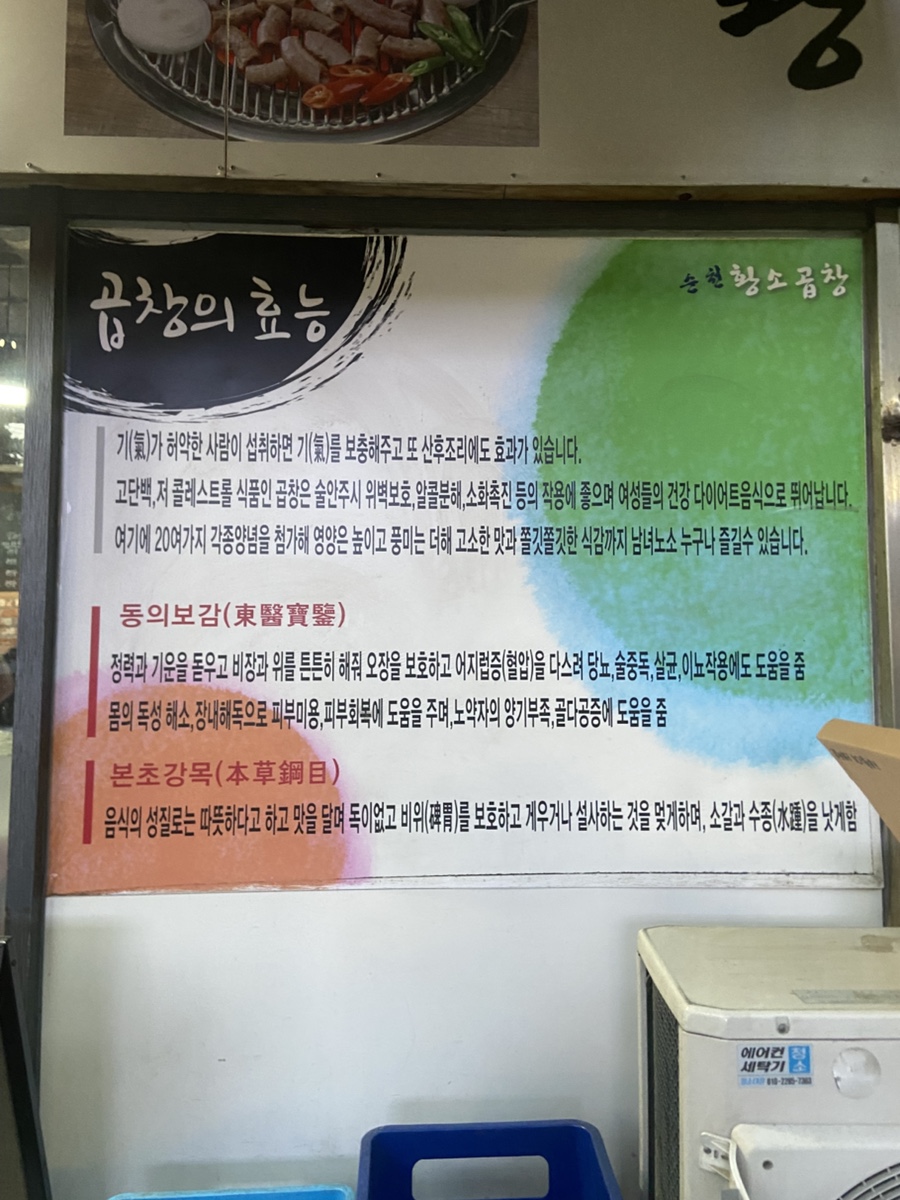 곱창의 효능
순천 황소곱창
기(氣)가 허약한 사람이 섭취하면 기(氣)를 보충해주고 또 산후조리에도 효과가 있습니다.
고단백,저 콜레스트롤 식품인 곱창은 술안주시 위벽보호,알콜분해,소화촉진 등의 작용에 좋으며 여성들의 건강 다이어트음식으로 뛰어납니다.
여기에 20여가지 각종양념을 첨가해 영양은 높이고 풍미는 더해 고소한 맛과 쫄깃쫄깃한 식감까지 남녀노소 누구나 즐길수 있습니다.
동의보감(東醫寶鑒)
정력과 기운을 돋우고 비장과 위를 튼튼히 해줘 오장을 보호하고 어지럽증(혈압)을 다스려 당뇨,술중독,살균,이뇨작용에도 도움을 줌
몸의 독성 해소,장내해독으로 피부미용,피부회복에 도움을 주며,노약자의 양기부족,골다공증에 도움을 줌
본초강목(本草鋼目)
음식의 성질로는 따뜻하다고 하고 맛을 달며 독이없고 비위(碑胃)를 보호하고 게우거나 설사하는 것을 멎게하며, 소갈과 수종(水踵)을 낫게함
에어컨 청소
세탁기